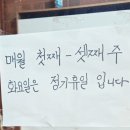 매월 첫째 - 셋째 주
화요일은 정기휴일 입니다